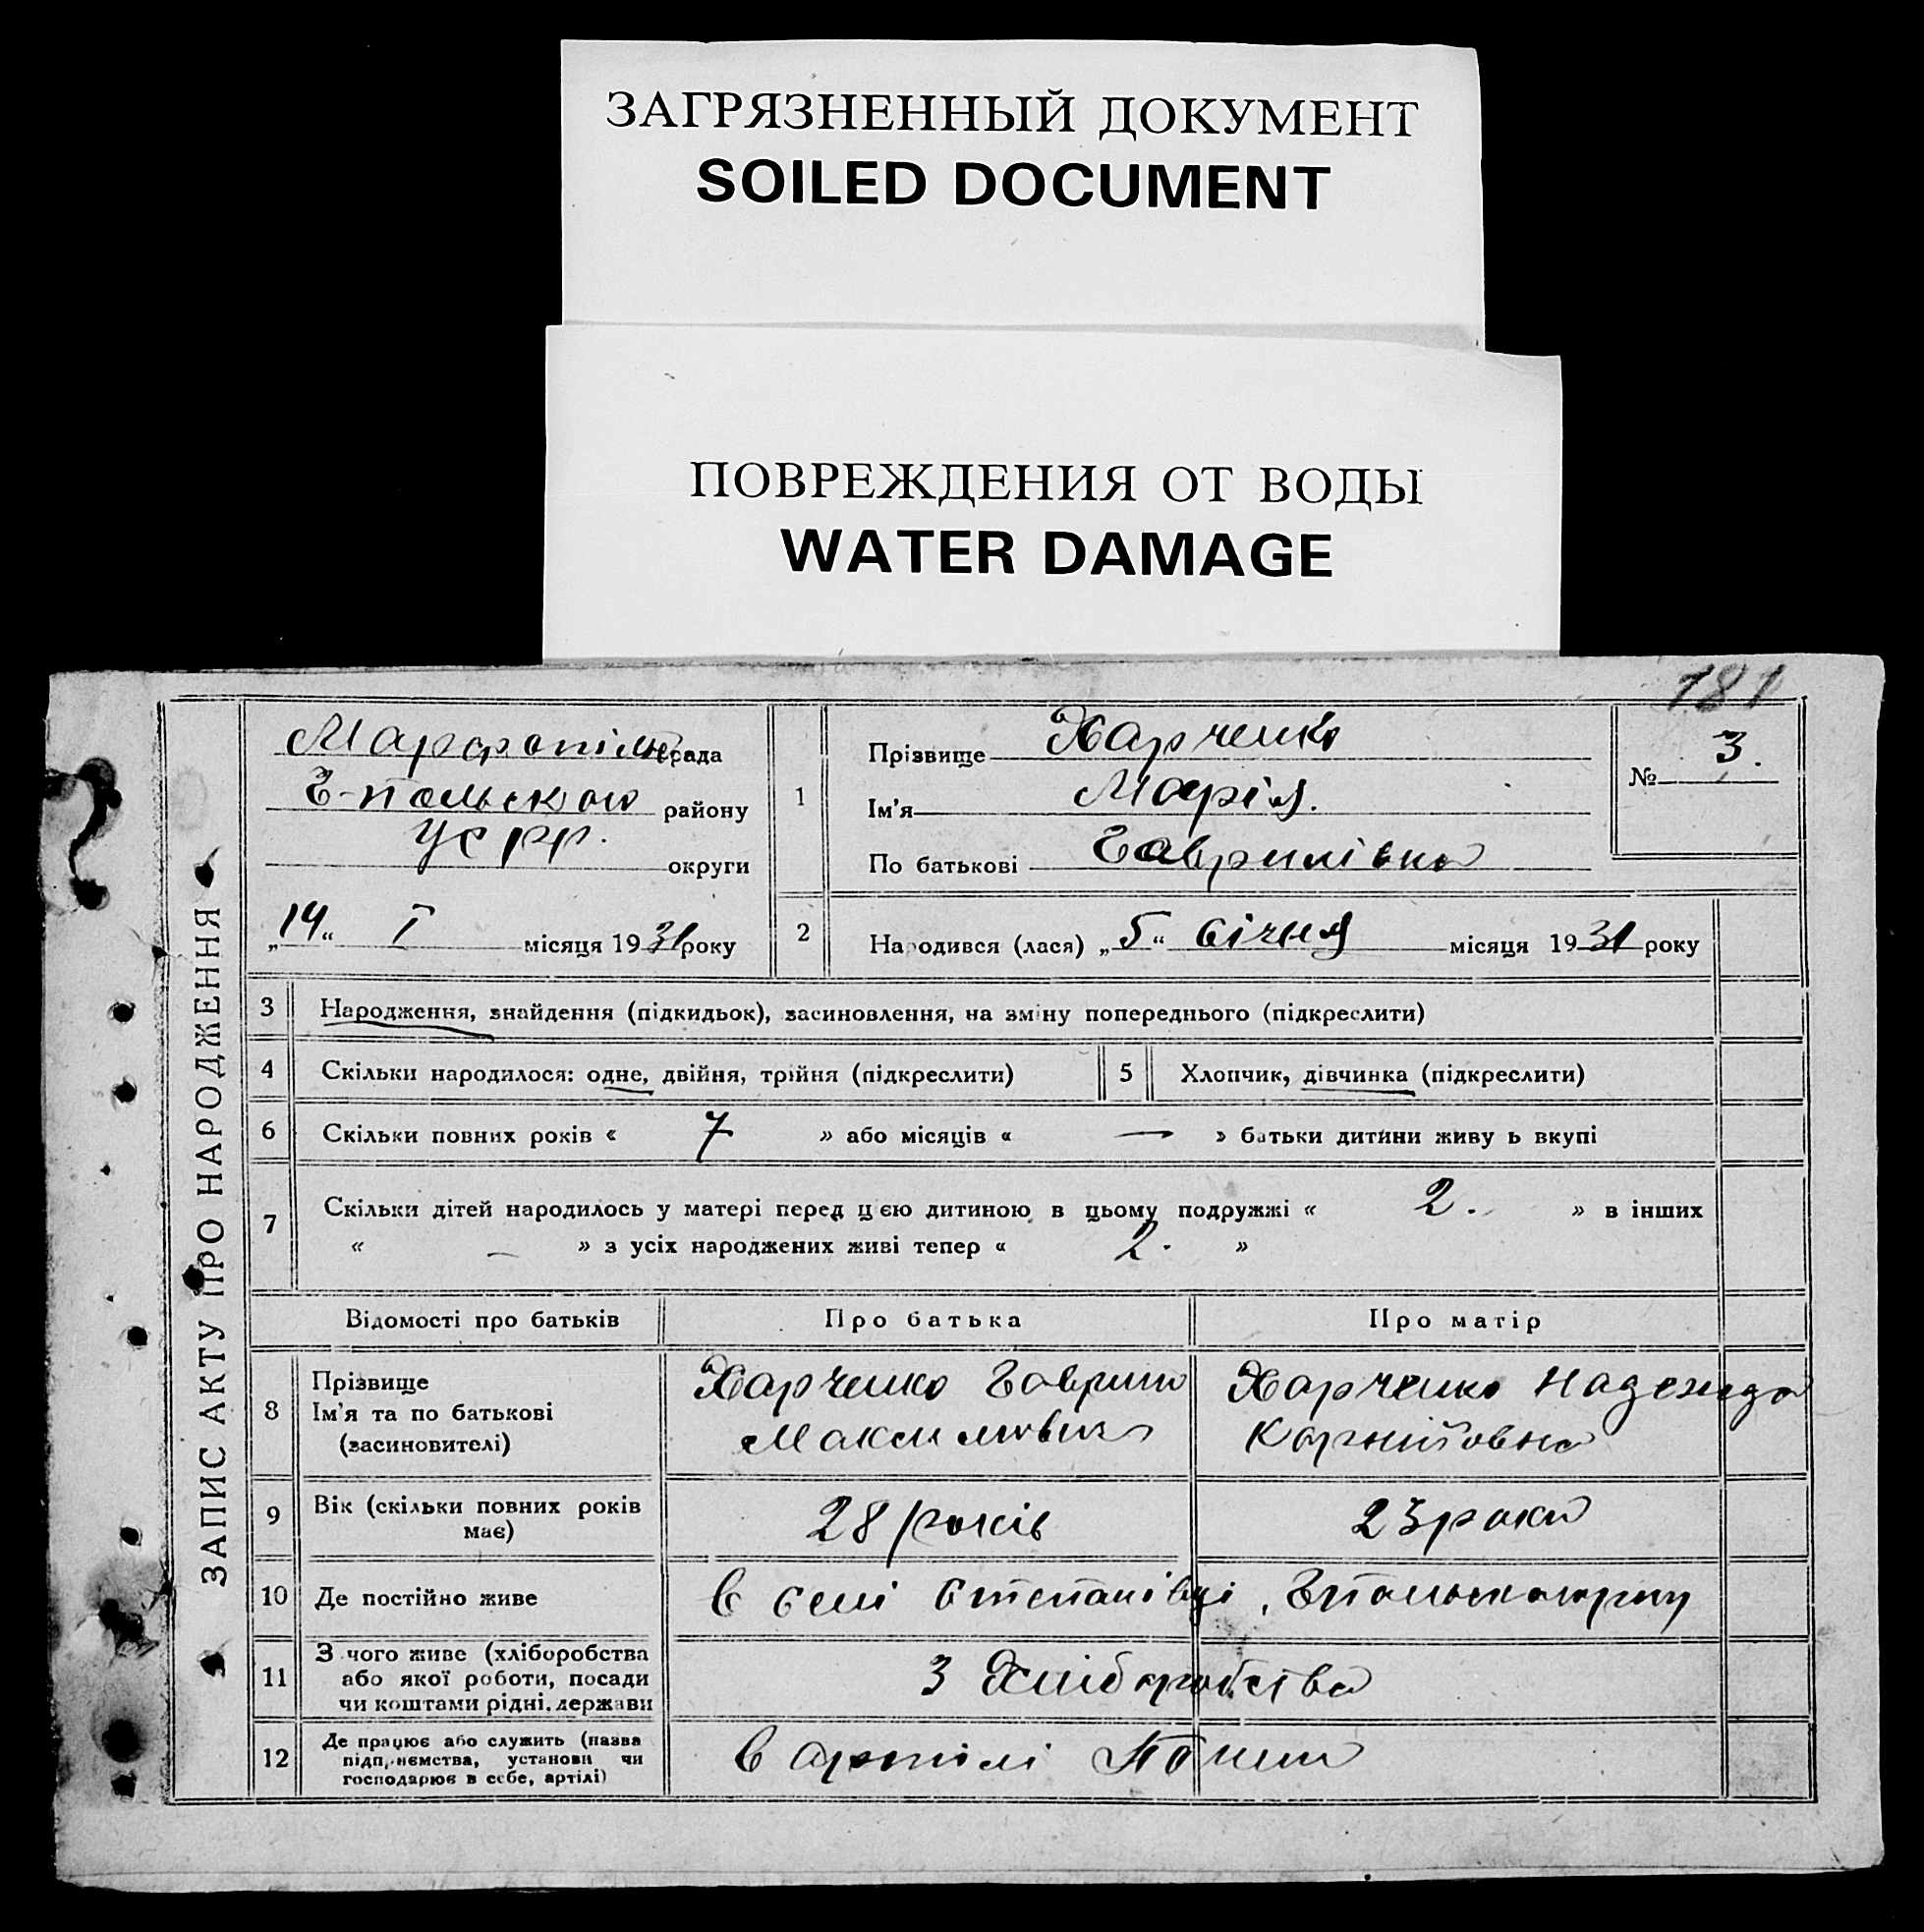 ЗАГРЯЗНЕННЫЙ ДОКУМЕНТ
SOILED DOCUMENT
ПОВРЕЖДЕНИЯ ОТ ВОДЫ
WATER DAMAGE
181
ЗАПИС АКТУ ПРО НАРОДЖЕННЯ
Марфопільс рада
Г-польского району
УСРР. округи
„14“ I місяця 1931 року
1
Прізвище Харченко
Ім'я Марія.
По батькові Гаврилівна
№ 3.
2
Народився (лася) „5“ січня місяця 1931 року
3 Народження, знайдення (підкидьок), засиновлення, на зміну попереднього (підкреслити)
4 Скільки народилося: одне, двійня, трійня (підкреслити)
5 Хлопчик, дівчинка (підкреслити)
6 Скільки повних років « 7 » або місяців « — » батьки дитини живу ь вкупі
7 Скільки дітей народилось у матері перед цією дитиною в цьому подружжі « 2. » в інших
« — » з усіх народжених живі тепер « 2. »
Відомості про батьків Про батька Про матір
8 Прізвище
Ім'я та по батькові
(засиновителі)
Харченко Гаврило
Максимович
Харченко Надежда
Корнійовна
9 Вік (скільки повних років
має)
28 років
23 роки
10 Де постійно живе
в селі Степанівці,
11 З чого живе (хліборобства
або якої роботи, посади
чи коштами рідні, держави
З Хліборобства
12 Де працює або служить (назва
підприємства, установи чи
господарює в себе, артілі)
в артілі